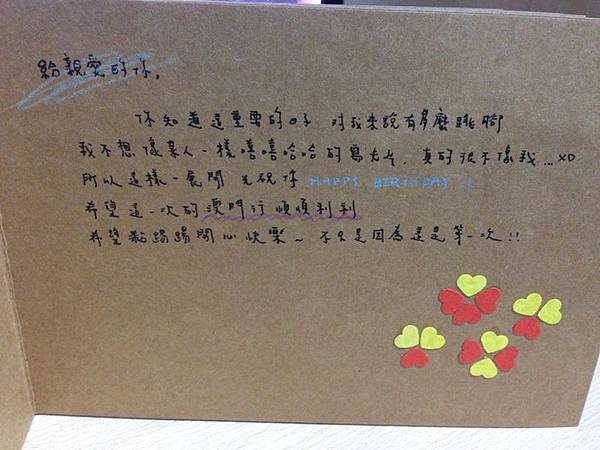 給親愛的你,
你知道這重要的日子 对我來說有多麼跳腳
我不想像某人一樣嘻嘻哈哈的寫卡片. 真的很不像我...XD
所以這樣一展開 先祝你 HAPPY BIRTHDAY !!
希望這一次的澳門行順順利利
希望黏踢踢開心快樂~ 不只是因為這是第一次!!